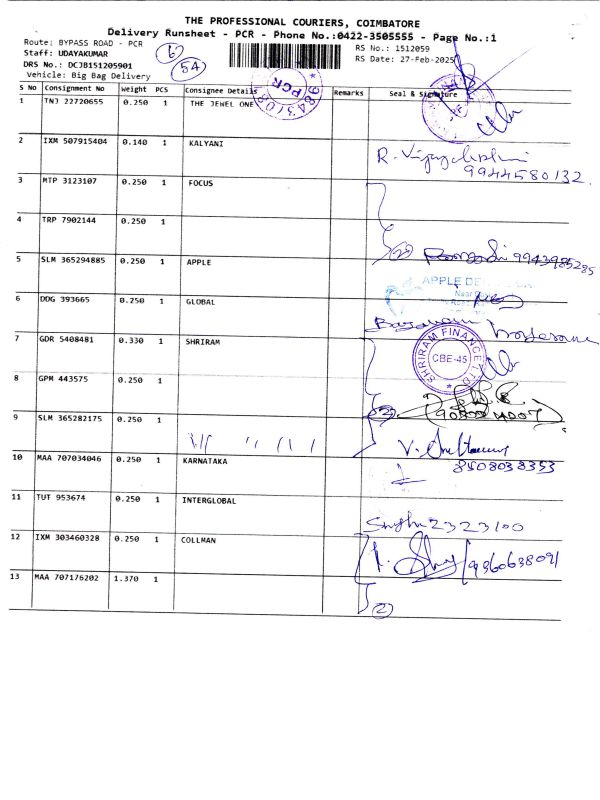 THE PROFESSIONAL COURIERS, COIMBATORE
Delivery Runsheet - PCR - Phone No.:0422-3505555 - Page No.:1
Route: BYPASS ROAD - PCR
RS No.: 1512059
Staff: UDAYAKUMAR
6
RS Date: 27-Feb-2025
DRS No.: DCJB151205901
54
Vehicle: Big Bag Delivery
S No Consignment No Weight PCS Consignee Details Remarks Seal & Signature
PCR
1 TNJ 22720655 0.250 1 THE JEWEL ONE
2 IXM 507915404 0.140 1 KALYANI
9944580132
3 MTP 3123107 0.250 1 FOCUS
4 TRP 7902144 0.250 1
5 SLM 365294885 0.250 1 APPLE
9943985285
APPLE
6 DDG 393665 0.250 1 GLOBAL
7 GDR 5408481 0.330 1 SHRIRAM
SHRIRAM FINANCE LTD
CBE-45
8 GPM 443575 0.250 1
9 SLM 365282175 0.250 1
10 MAA 707034046 0.250 1 KARNATAKA
8508038353
11 TUT 953674 0.250 1 INTERGLOBAL
2323100
12 IXM 303460328 0.250 1 COLLMAN
9360638091
13 MAA 707176202 1.370 1
2